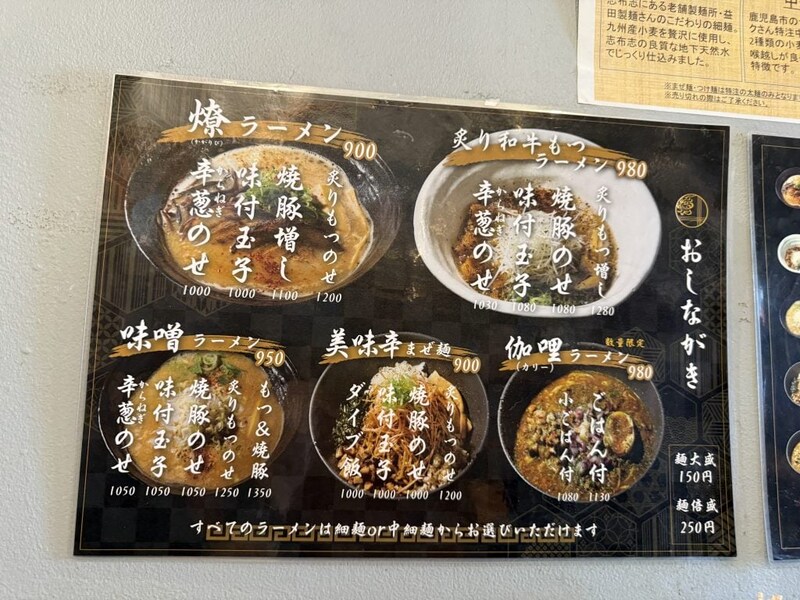 志布志にある老舗製麺所・益
田製麺さんのこだわりの細麺。
九州産小麦を贅沢に使用し、
志布志の良質な地下天然水
でじっくり仕込みました。
鹿児島市の
クさん特注中
2種類の小麦
喉越しが良
特徴です。
※まぜ麺・つけ麺は特注の太麺のみとなりま
※売り切れの際はご了承ください。
おしながき
燎ラーメン 900
(かがりび)
炙りもつのせ 1200
焼豚増し 1100
味付玉子 1000
辛葱のせ 1000
からねぎ
炙り和牛もつ
ラーメン 980
炙りもつ増し 1280
焼豚のせ 1080
味付玉子 1080
辛葱のせ 1030
からねぎ
味噌ラーメン 950
もつ&焼豚 1350
炙りもつのせ 1250
焼豚のせ 1050
味付玉子 1050
辛葱のせ 1050
からねぎ
美味辛まぜ麺 900
炙りもつのせ 1200
焼豚のせ 1000
味付玉子 1000
ダイブ飯 1000
数量限定
伽哩ラーメン 980
(カリー)
ごはん付 1130
小ごはん付 1080
麺大盛
150円
麺倍盛
250円
すべてのラーメンは細麺or中細麺からお選びいただけます